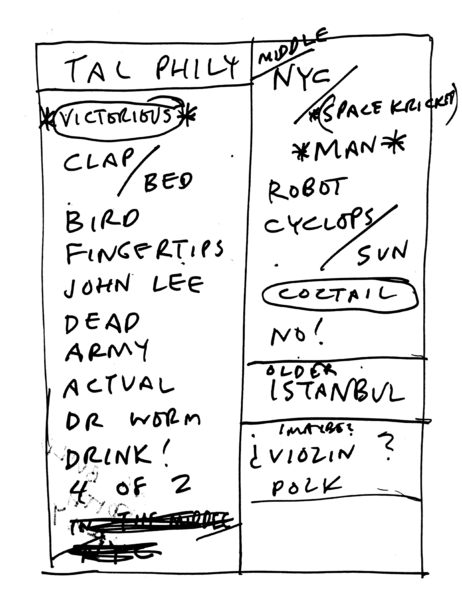 TAL PHILY
*VICTORIOUS*
CLAP/
BED
BIRD
FINGERTIPS
JOHN LEE
DEAD
ARMY
ACTUAL
DR WORM
DRINK!
4 OF 2
IN THE MIDDLE
NYC
MIDDLE
NYC/
*(SPACE KRICKET)
*MAN*
ROBOT
CYCLOPS/
SUN
COZTAIL
NO!
OLDER
ISTANBUL
¡MAYBE?
¿VIOZIN ?
POZK